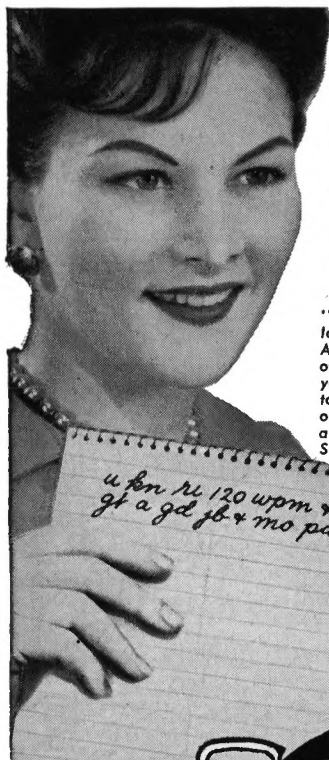 u kn ri 120 wpm &
gt a gd jb & mo pa